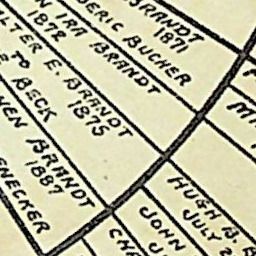 BRANDT
1871
ERIC BUCHER
N IRA BRANDT
1872
LTER E. BRANDT
1875
TO BECK
EN BRANDT
1887
ENECKER
HUGH B. B
JULY 2
JOHN
JU
CHA